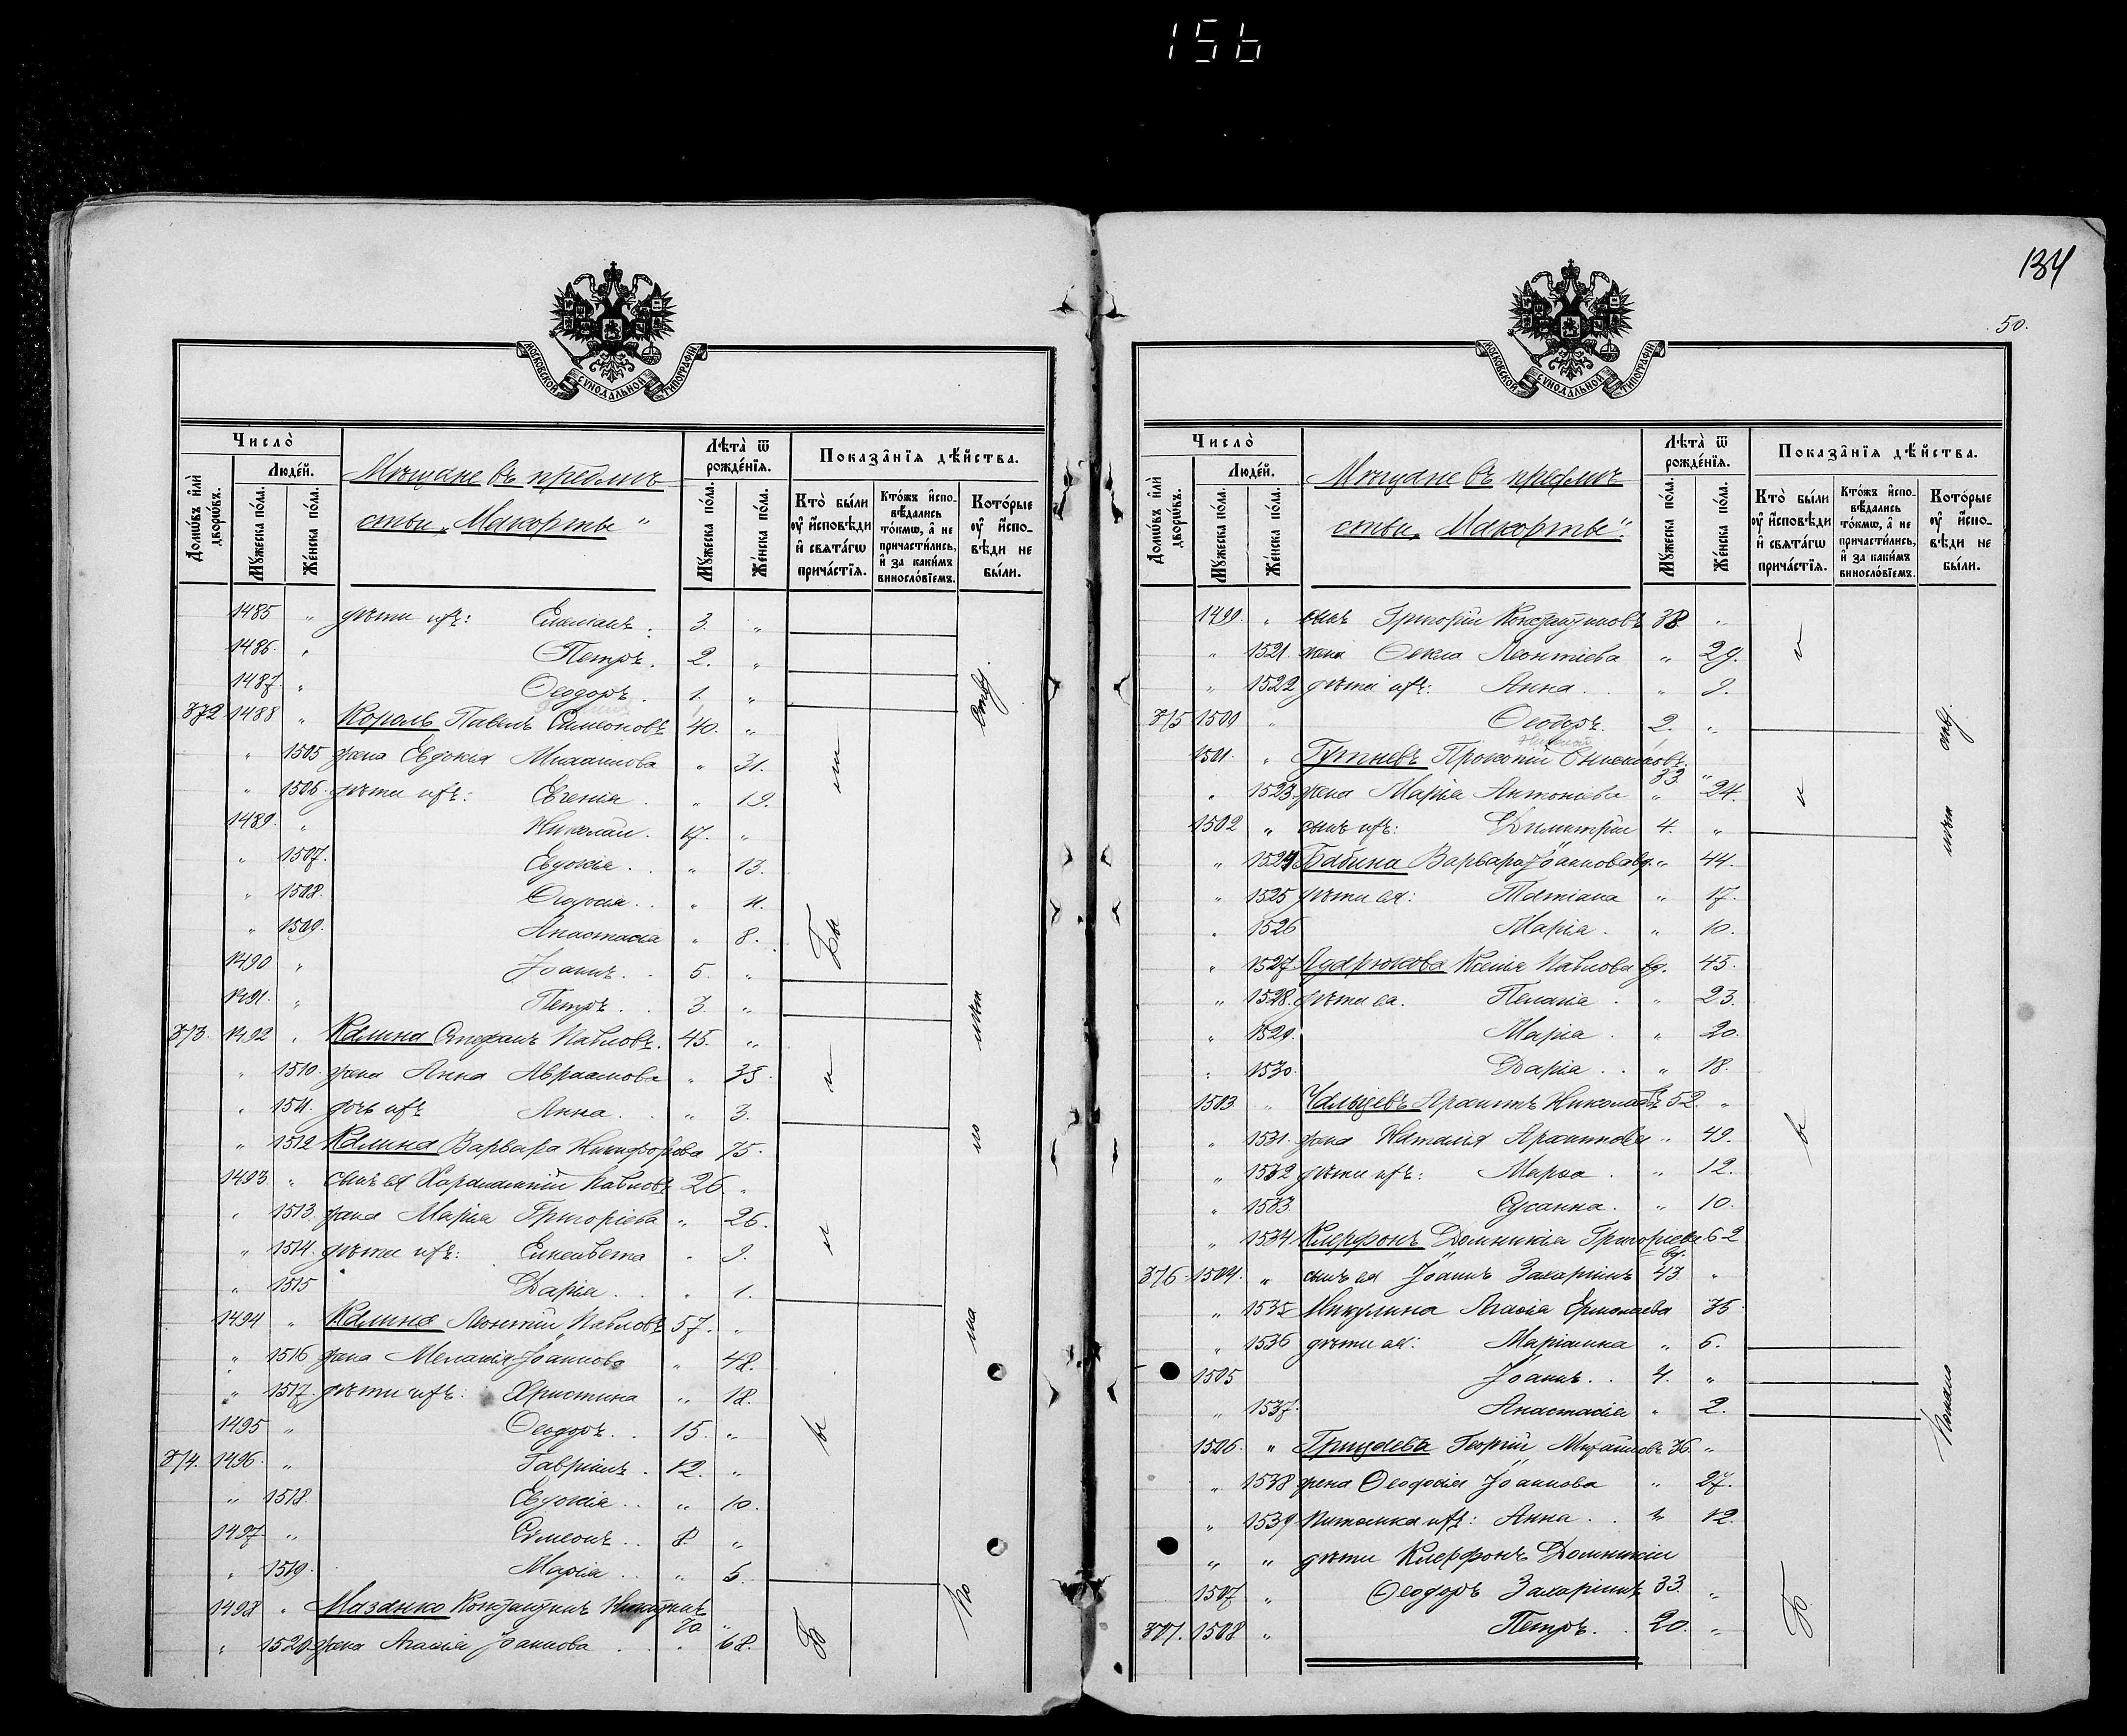 156
МОСКОВСКОЙ СѴНОДАЛЬНОЙ ТИПОГРАФІИ
Число̀
Людéй.
Домѡ́въ и҆лѝ дворѡ́въ.
Мꙋ́жеска по́ла.
Же́нска по́ла.
Мѣщане въ предмѣ-
стьи „Макорты"
Лѣта̀ ѿ рожде́нїя.
Мꙋ́жеска по́ла.
Же́нска по́ла.
Показа̑нїя дѣ́йства.
Кто̀ бы́ли ᲂу҆ и҆сповѣди и҆ свята́гѡ прича́стїя.
Кто́жъ и҆сповѣдались то́кмѡ, а҆ не причасти́лись, и҆ за каки́мъ винослó­вїемъ.
Кото́рые ᲂу҆ и҆споʹвѣди не бы́ли.
1485 " дѣти ихъ: Емиліанъ. 3. "
1486. " Петръ. 2. "
1487. " Ѳеодоръ. 1. "
372 1488 " Король Павелъ Симеоновъ 40. "
" 1505 жена Евдокія Михаилова " 31.
" 1506. дѣти ихъ: Евгенія. " 19.
1489. " Николай. 17. "
" 1507. Евдокія. " 13.
" 1508. Ѳеодосія. " 11.
" 1509. Анастасія " 8.
1490 " Іоаннъ. 5. "
1491. " Петръ. 3. "
373. 1492 " Калина Стефанъ Павловъ. 45. "
" 1510. жена Анна Авраамова " 35.
" 1511. дочь ихъ Анна. " 3.
" 1512 Калина Варвара Никифорова 75.
1493. " сынъ ея Харалампій Павловъ 26. "
" 1513. жена Марія Григоріева " 26.
" 1514. дѣти ихъ: Елисавета " 9.
" 1515 Дарія. " 1.
1494 " Калина Леонтій Павловъ 57. "
" 1516 жена Меланія Іоаннова " 48.
" 1517. дѣти ихъ: Христина " 18.
1495 " Ѳеодоръ. 15. "
374. 1496. " Гавріилъ. 12. "
" 1518. Евдокія. " 10.
1497. " Симеонъ. 8 "
" 1519. Марія. " 5.
1498 " Мазанко Константинъ Никитинъ 70 "
" 1520. жена Агафія Іоаннова " 68.
134
50.
МОСКОВСКОЙ СѴНОДАЛЬНОЙ ТИПОГРАФІИ
Число̀
Людéй.
Домѡ́въ и҆лѝ дворѡ́въ.
Мꙋ́жеска по́ла.
Же́нска по́ла.
Мѣщане въ предмѣ-
стьи „Макорты".
Лѣта̀ ѿ рожде́нїя.
Мꙋ́жеска по́ла.
Же́нска по́ла.
Показа̑нїя дѣ́йства.
Кто̀ бы́ли ᲂу҆ и҆сповѣди и҆ свята́гѡ прича́стїя.
Кто́жъ и҆сповѣдались то́кмѡ, а҆ не причасти́лись, и҆ за каки́мъ винослó­вїемъ.
Кото́рые ᲂу҆ и҆споʹвѣди не бы́ли.
1499. " сынъ Григорій Константиновъ 38 "
" 1521. жена Ѳекла Леонтіева " 29.
" 1522 дѣти ихъ: Анна. " 9.
375 1500 " Ѳеодоръ. 2. "
1501. " Прокопій 33. "
" 1523. жена Марія Антоніева " 24.
1502 " сынъ ихъ: Димитрій 4. "
" 1524 Бабина Варвара Іоаннова вд. " 44.
" 1525 дѣти ея: Татіана " 17.
" 1526 Марія. " 10.
" 1527. Ксенія Павлова вд. 45.
" 1528. дѣти ея. Пелагія. " 23.
" 1529. Марія. " 20.
" 1530. Дарія. " 18.
1503. " Николаевъ 52. "
" 1531. жена Наталія " 49.
" 1532 дѣти ихъ: Марѳа. " 12.
" 1533 Сусанна. " 10.
" 1534. Клерфонъ Домникія Григоріева вд. 62
376. 1504. " сынъ ея Іоаннъ Захаріинъ 43. "
" 1535 Микулина Агафія Ермолаева 35
" 1536 дѣти ея: Маріанна " 6.
1505 Іоаннъ. 4. "
" 1537. Анастасія " 2.
1506. " Грицаевъ Георгій Михаиловъ 36. "
" 1538 жена Ѳеодосія Іоаннова " 27.
" 1539 Питомка ихъ: Анна. " 12.
" " дѣти Клерфонъ Домникіи
1507 " Ѳеодоръ Захаріинъ 33. "
377. 1508 " Петръ. 20. "